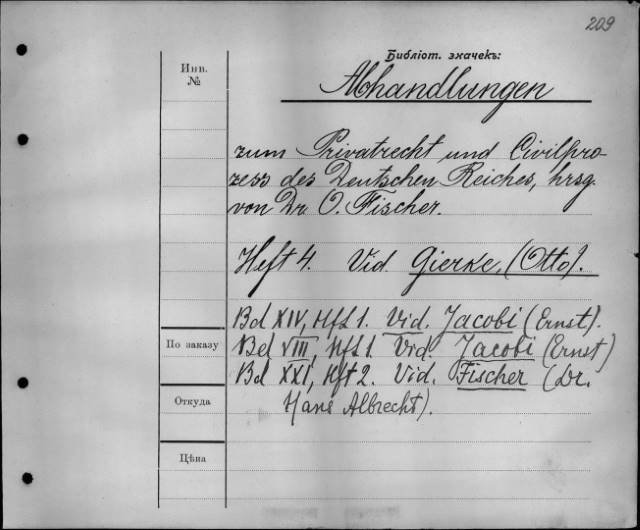 209
Библіот. значекъ:
Инв.
№
Abhandlungen
zum Privatrecht und Civilpro-
zess des Deutschen Reiches, hrsg.
von Dr. O. Fischer.
Heft 4. Vid. Gierke, (Otto).
Bd XIV, Hft 1. Vid. Jacobi (Ernst).
По заказу
Bd VIII, Hft 1. Vid. Jacobi (Ernst)
Bd XXI, Hft 2. Vid. Fischer (Dr.
Откуда
Hans Albrecht).
Цѣна